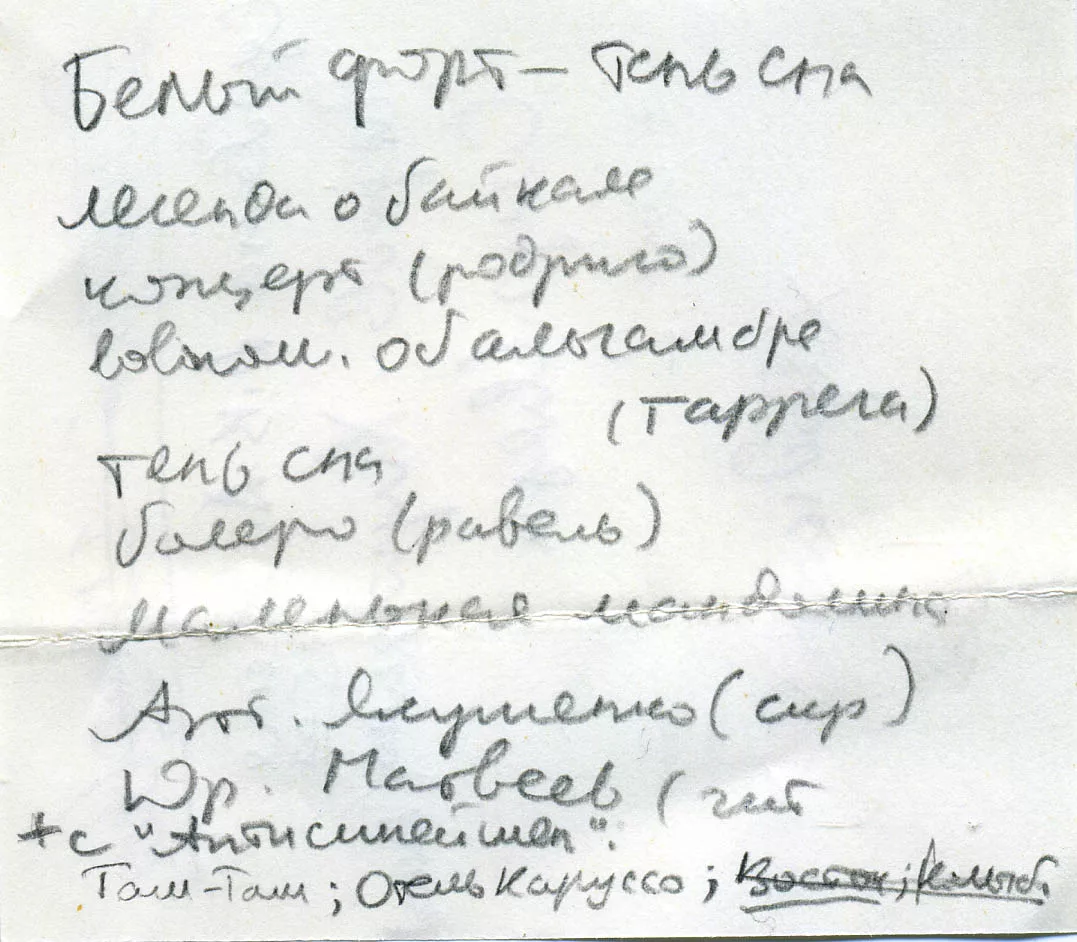 Белый форт – тень сна
легенда о байкале
концерт (родриго)
воспом. об альгамбре
(таррега)
тень сна
болеро (равель)
маленькая мандолина
Арт. Якушенко (скр)
Юр. Матвеев (гит
+ с "Антисинейшен":
Там-Там; Отель Каруссо; Восток;